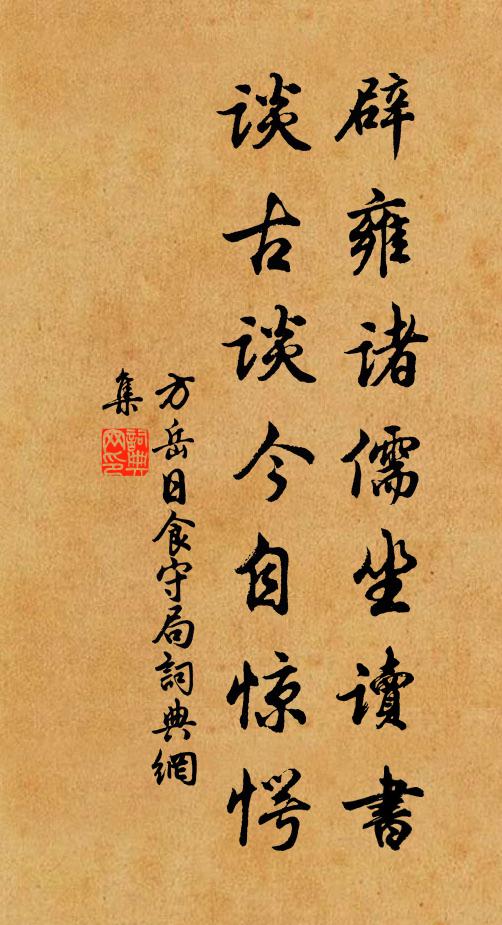 辟雍诸儒坐讀書
谈古谈今自惊愕
方岳日食守局詞典網
集
詞典網印